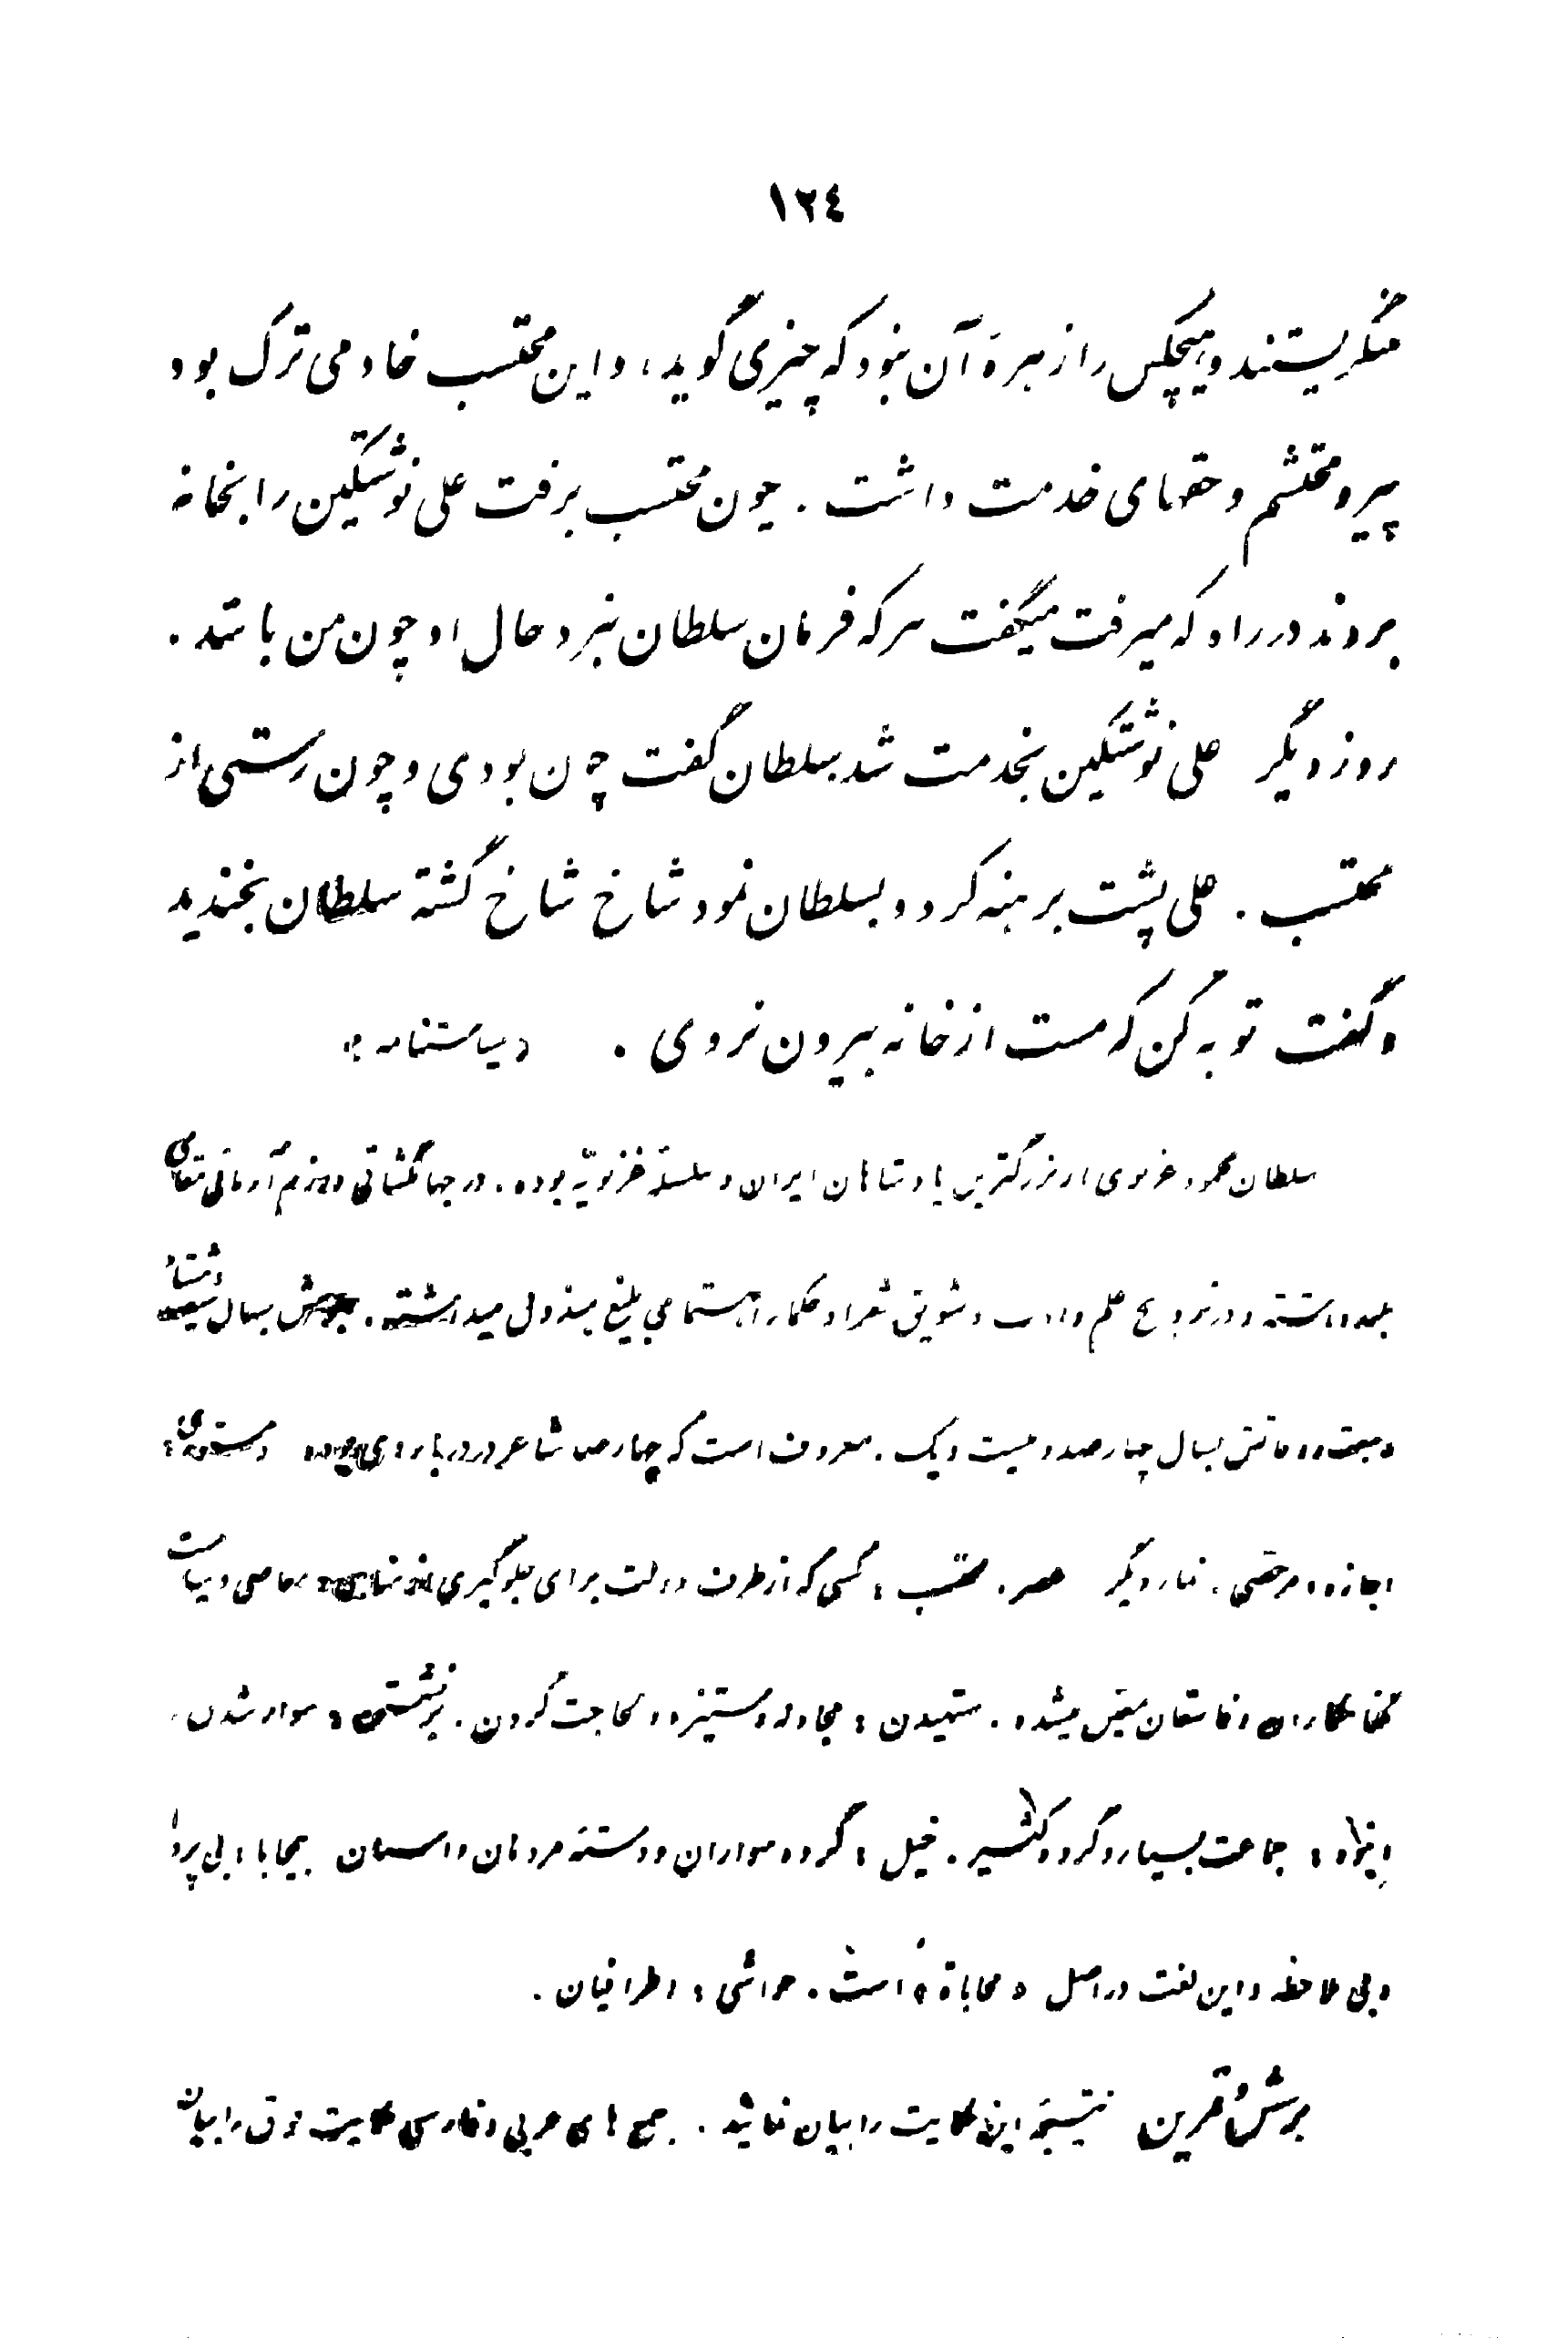 ١٢٤
مینگریستند و هیچکس را زهرهٔ آن نبود که چیزی گوید، و این محتسب خادمی ترک بود
پیر و محتشم و حقهای خدمت داشت . چون محتسب برفت علی نوشتگین را بخانه
بردند در راه که میرفت میگفت هر که فرمان سلطان نبرد حال او چون من باشد .
روز دیگر علی نوشتگین بخدمت شد سلطان گفت چون بودی و چون رستی از
محتسب . علی پشت برهنه کرد و بسلطان نمود شاخ شاخ گشته سلطان بخندید
و گفت توبه کن که مست از خانه بیرون نروی . « سیاستنامه »
سلطان محمود غزنوی از بزرگترین پادشاهان ایران و سلسلهٔ غزنویّه بوده . در جهانگشائی و رزم آزمائی مقامی
بلند داشته و در ترویج علم و ادب و تشویق شعرا و حکما را اهتمامی بلیغ مبذول میداشته . جلوسش بسال سیصد و هشتاد
و هفت و وفاتش بسال چهارصد و بیست و یک . معروف است که چهارصد شاعر در دربار وی بوده دستوری :
اجازه و مرخصی . نماز دیگر عصر . محتسب : کسی که از طرف دولت برای جلوگیری از مناهی و معاصی و سیاست
خطاکاران و فاسقان معین میشده . ستهیدن : مجادله و ستیزه و لجاجت کردن . برنشستن : سوار شدن .
انبوه : جماعت بسیار و گروه کثیر . خیل : گروه سواران و دستهٔ مردمان و اسبان بیمحابا : بی پروا
و بی ملاحظه و این لغت در اصل « محاباة » است . حواشی : اطرافیان .
پرسش و تمرین نتیجهٔ این حکایت را بیان نمائید . جمع های عربی و فارسی حکایت فوق را بیان